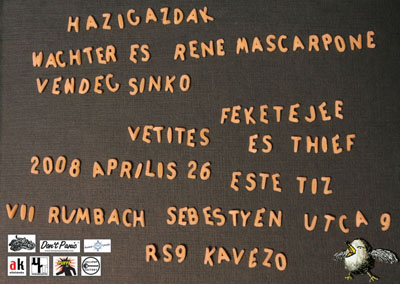 HAZIGAZDAK
WACHTER ES RENE MASCARPONE
VENDEG SINKO
FEKETEJEE
VETITES ES THIEF
2008 APRILIS 26 ESTE TIZ
VII RUMBACH SEBESTYEN UTCA 9
RS9 KAVEZO
Don't Panic
ak